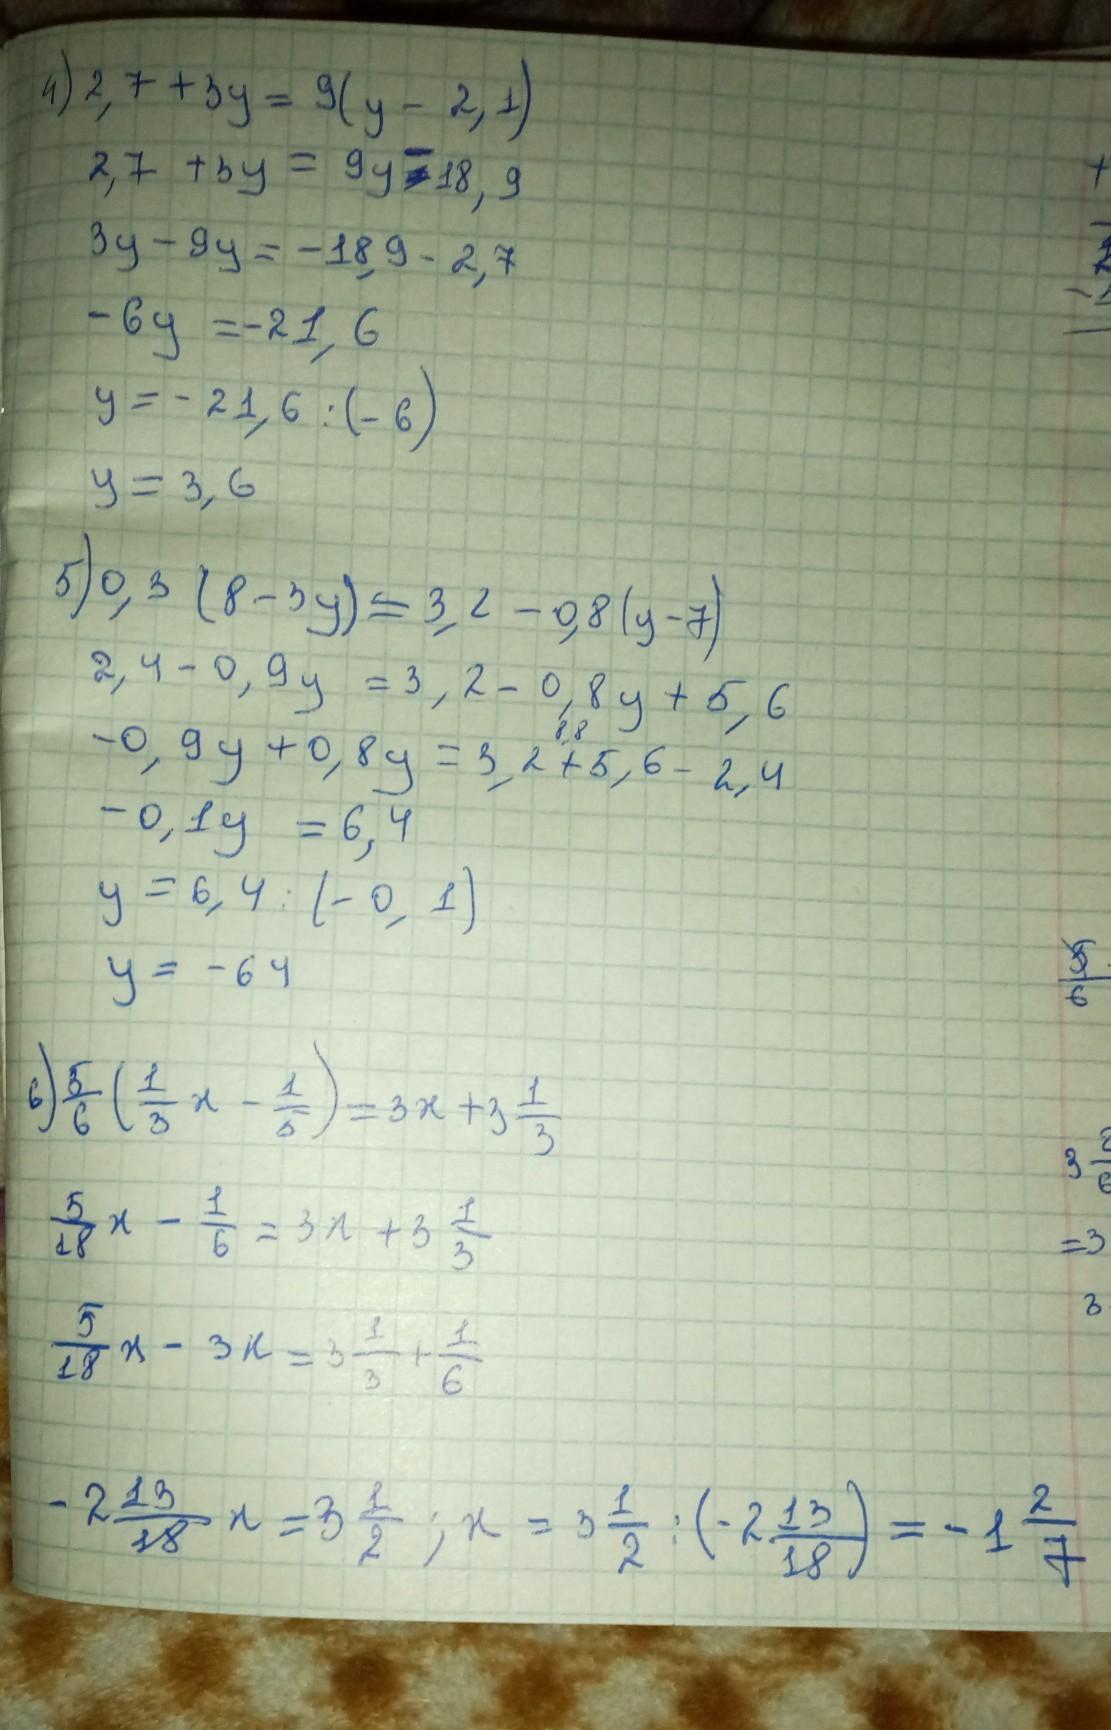 4) 2,7 + 3y = 9(y - 2,1)
2,7 + 3y = 9y - 18,9
3y - 9y = -18,9 - 2,7
-6y = -21,6
y = -21,6 : (-6)
y = 3,6
5) 0,3 (8 - 3y) = 3,2 - 0,8(y - 7)
2,4 - 0,9y = 3,2 - 0,8y + 5,6
8,8
-0,9y + 0,8y = 3,2 + 5,6 - 2,4
-0,1y = 6,4
y = 6,4 : (-0,1)
y = -64
6) 5/6 (1/3 x - 1/5) = 3x + 3 1/3
5/18 x - 1/6 = 3x + 3 1/3
5/18 x - 3x = 3 1/3 + 1/6
-2 13/18 x = 3 1/2 ; x = 3 1/2 : (-2 13/18) = -1 2/7